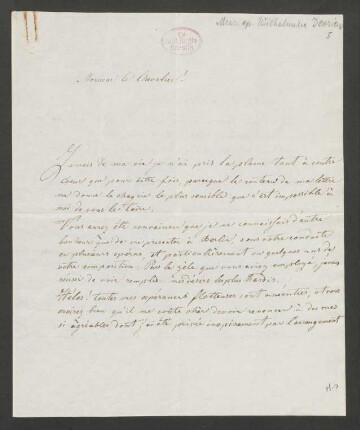 Monsieur le Chevalier!
Jamais de ma vie je n'ai pris la plume tant à contre
coeur que pour cette fois, puisque le contenu de ma lettre
me donne le chagrin le plus sensible que c'est impossible à
moi de vous le taire.
Vous aurez été convaincu que je ne connaissais d'autre
bonheur que de me presenter à Berlin, sous votre conduite
en plusieurs operas, et particulièrement en quelques uns de
votre composition. Par le zèle que vous aviez employé, j'avais
de voir remplis mes désirs les plus hardis.
Hélas! toutes mes espérances flatteuses sont anéanties, et vous
croirez bien qu'il me coûte cher devoir renoncer à des
si agréables dont j'ai été privée uniquement par l'arrangement